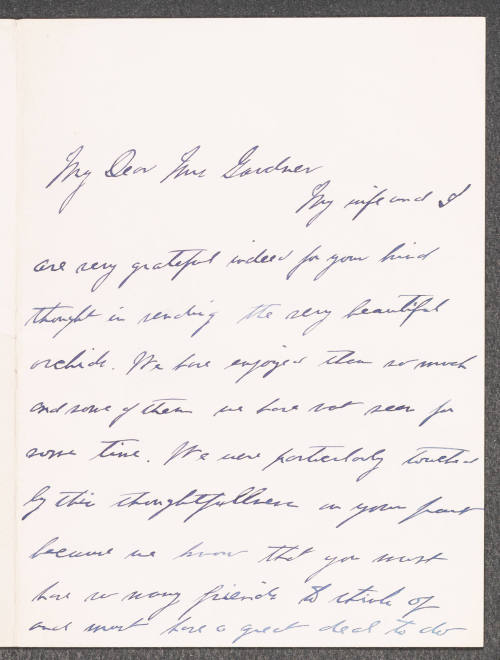 My Dear Mrs Gardner
My wife and I
are very grateful indeed for your kind
thought in sending the very beautiful
orchids. We have enjoyed them so much
and some of them we have not seen for
some time. We were particularly touched
by this thoughtfullness on your part
because we know that you must
have so many friends to think of
and must have a great deal to do